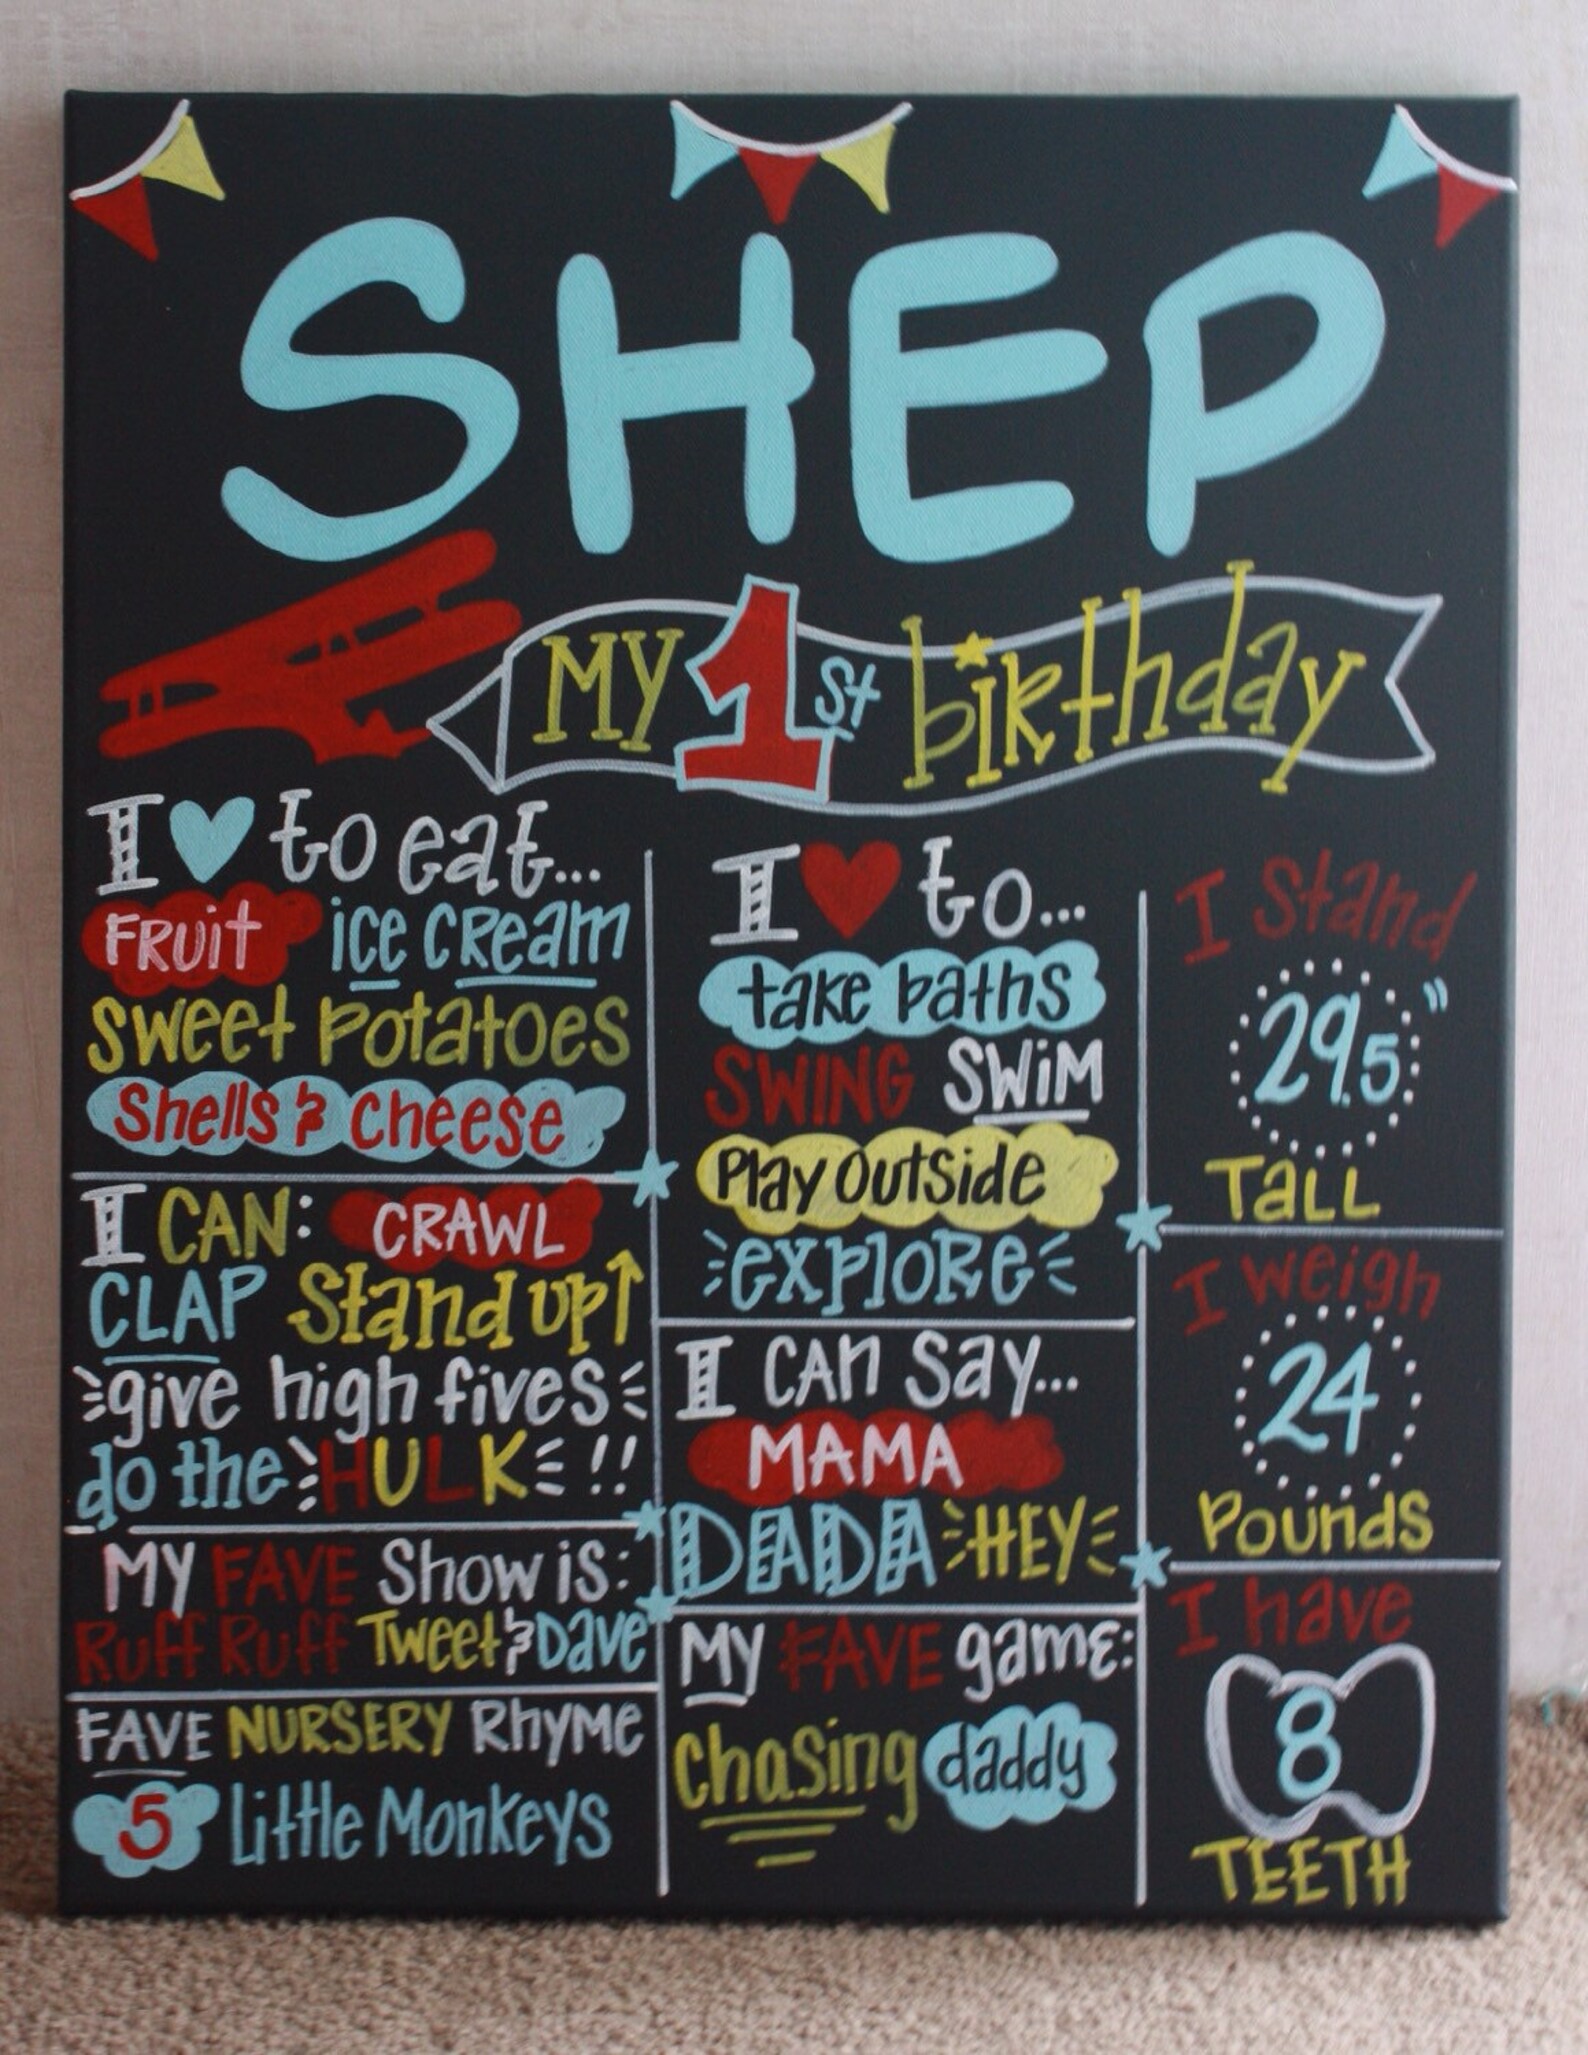 SHEP
MY 1st birthday
I ♥ to eat...
FRUIT ice cream
sweet potatoes
Shells & cheese
I CAN: CRAWL
CLAP Stand up↑
give high fives
do the HULK!!
MY FAVE Show is:
Ruff Ruff Tweet & Dave
FAVE NURSERY Rhyme
5 Little Monkeys
I ♥ to...
take baths
SWING SWiM
Play outside
explore
I CAn Say...
MAMA
DADA HEY
My FAVE game:
chasing daddy
I Stand
29.5"
TALL
I weigh
24
Pounds
I have
8
TEETH